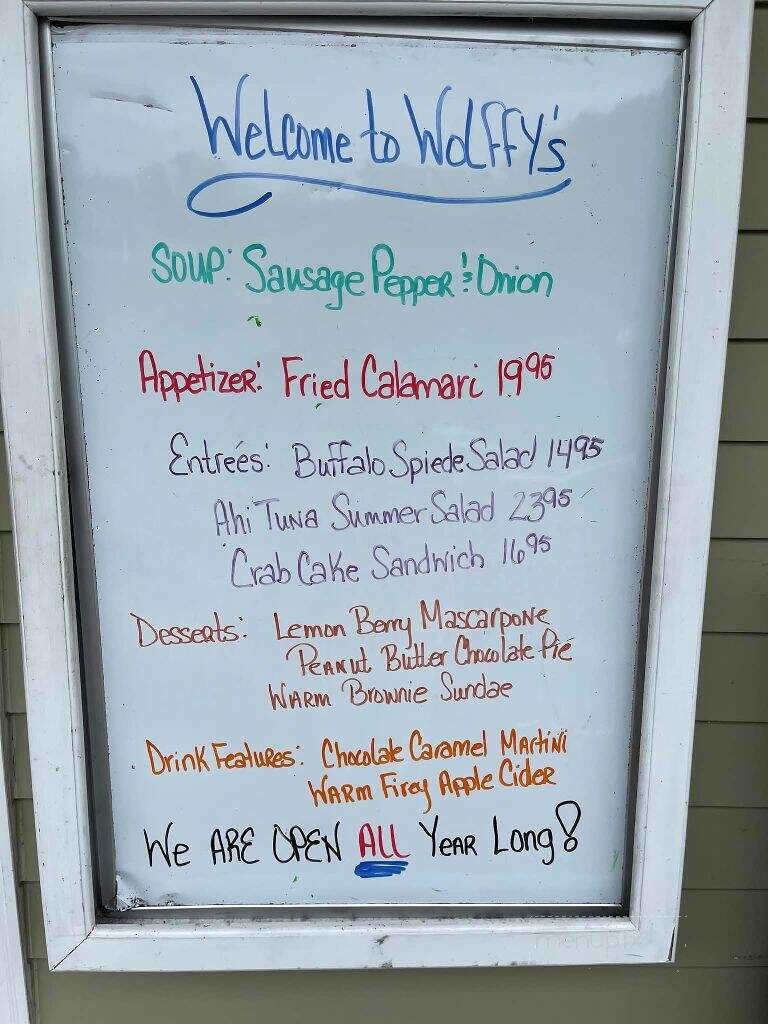 Welcome to Wolffy's
Soup: Sausage Pepper & Onion
Appetizer: Fried Calamari 19 95
Entrées: Buffalo Spiede Salad 14 95
Ahi Tuna Summer Salad 23 95
Crab Cake Sandwich 16 95
Desserts: Lemon Berry Mascarpone
Peanut Butter Chocolate Pie
Warm Brownie Sundae
Drink Features: Chocolate Caramel Martini
Warm Firey Apple Cider
We ARE OPEN ALL Year Long!
menupix